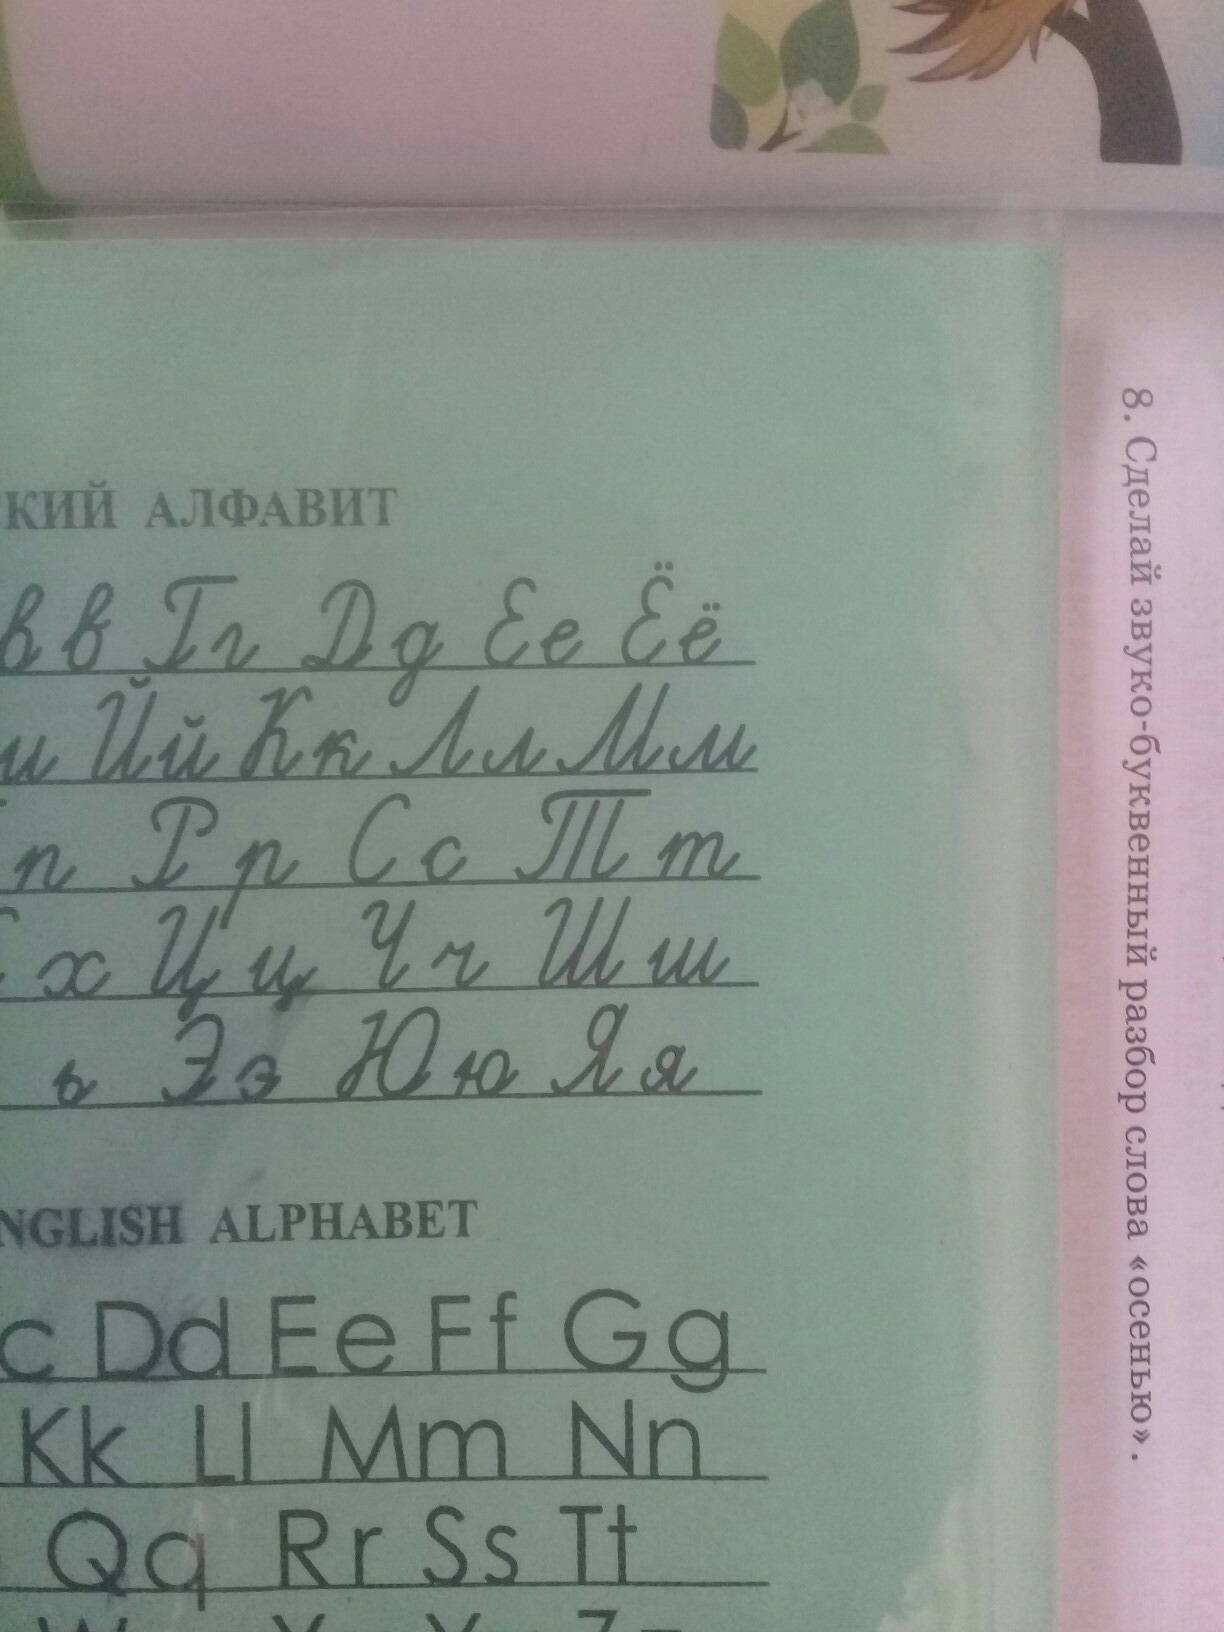 АЛФАВИТ
в Гг Дд Ее Ёё
Йй Кк Лл Мм
п Рр Сс Тт
х Цц Чч Шш
ь Ээ Юю Яя
ALPHABET
c Dd Ee Ff Gg
Kk Ll Mm Nn
Qq Rr Ss Tt
8. Сделай звуко-буквенный разбор слова «осенью».